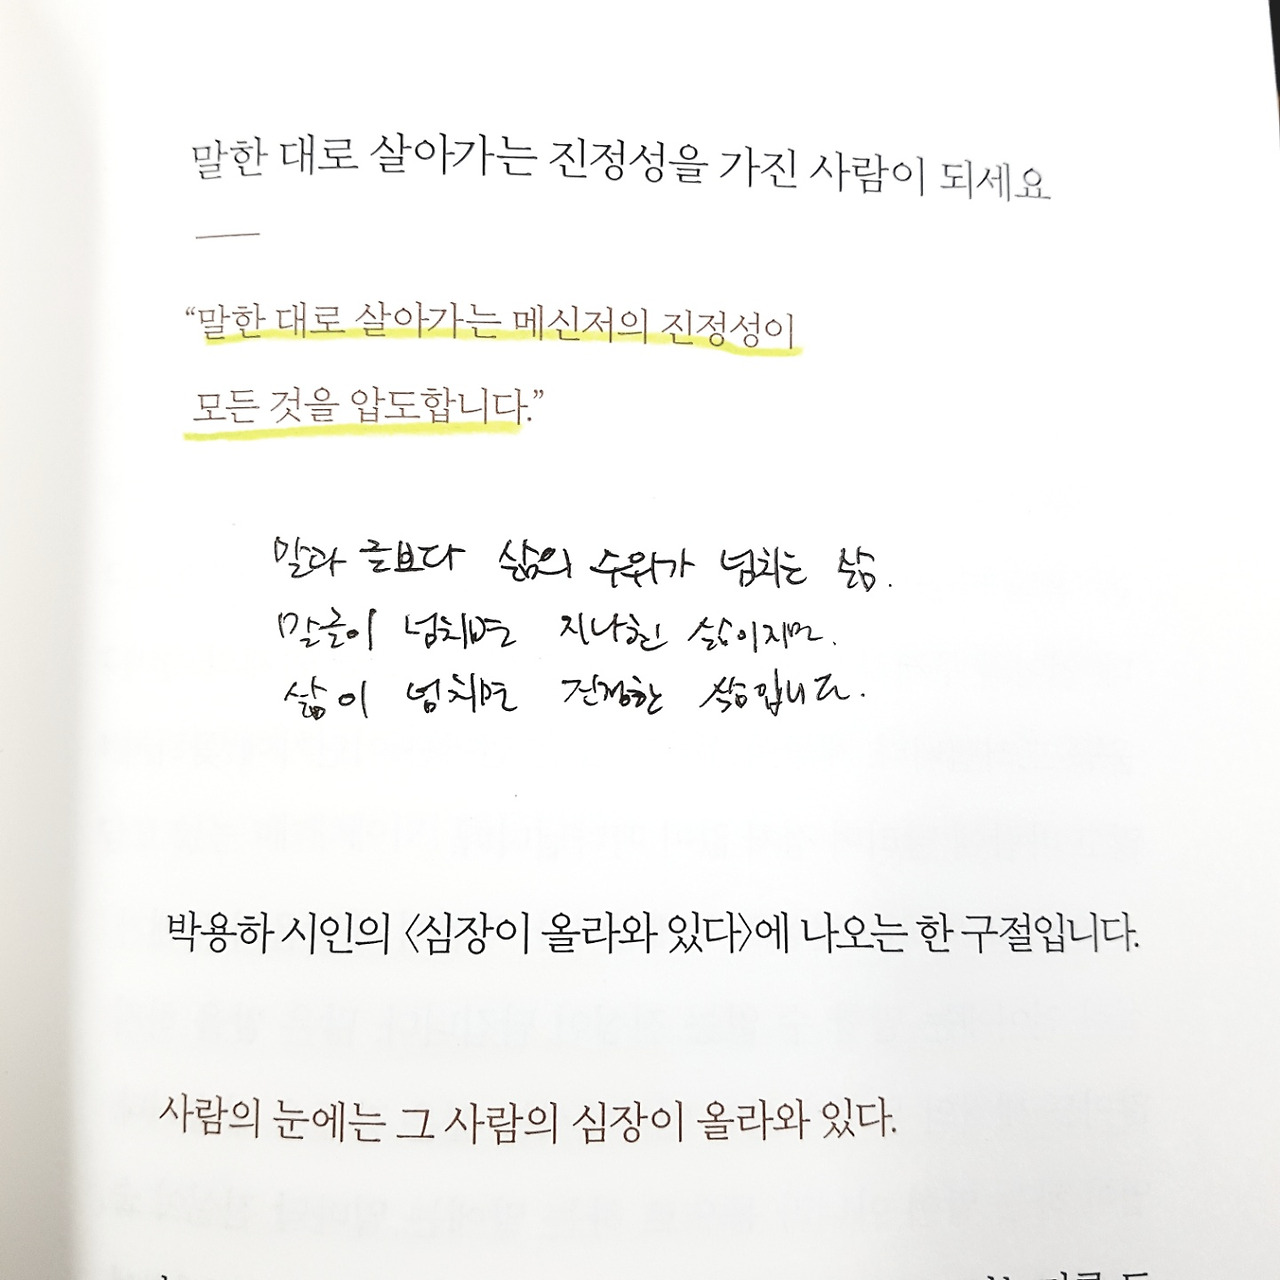 말한 대로 살아가는 진정성을 가진 사람이 되세요
“말한 대로 살아가는 메신저의 진정성이
모든 것을 압도합니다.”
말과 글보다 삶의 수위가 넘치는 삶.
말글이 넘치면 지나친 삶이지만.
삶이 넘치면 진정한 삶입니다.
박용하 시인의 〈심장이 올라와 있다〉에 나오는 한 구절입니다.
사람의 눈에는 그 사람의 심장이 올라와 있다.